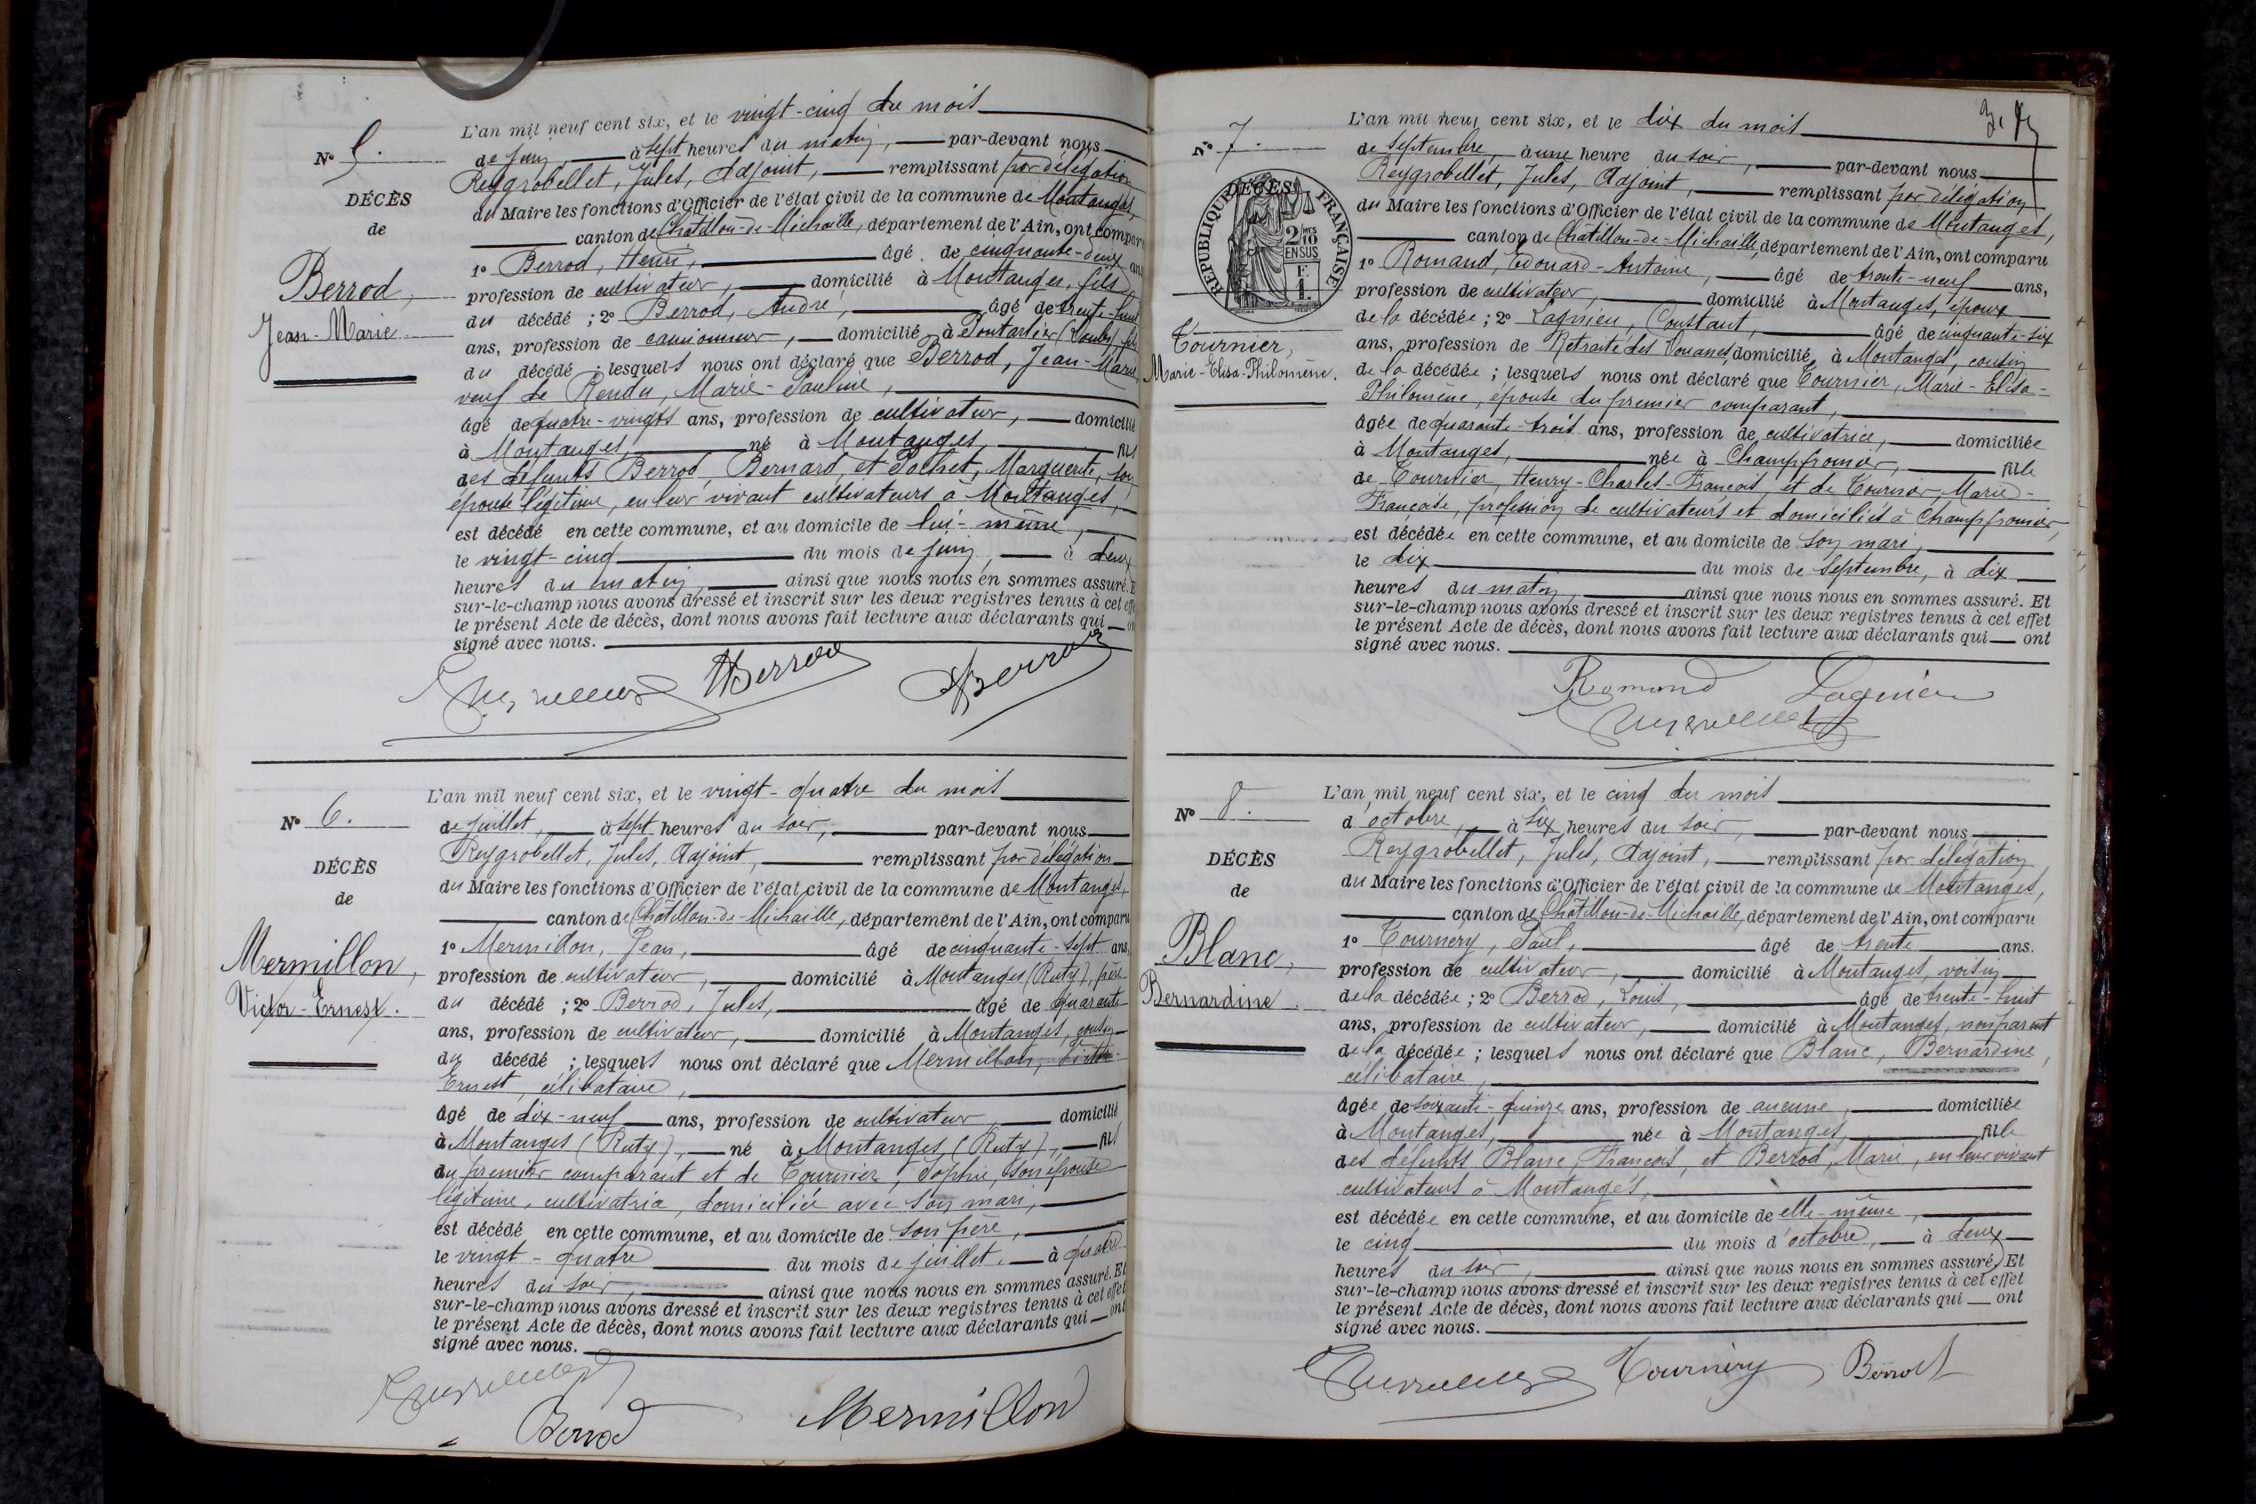 L'an mil neuf cent six, et le vingt-cinq du mois
N° 5.
de juin, à sept heures du matin, par-devant nous
Reygrobellet, Jules, Adjoint, remplissant par délégation
DÉCÈS
du Maire les fonctions d'Officier de l'état civil de la commune de Montanges,
de
canton de Châtillon-de-Michaille, département de l'Ain, ont comparu
1° Berrod, Henri, âgé de cinquante-deux ans
Berrod,
profession de cultivateur, domicilié à Montanges, fils
Jean-Marie
du décédé ; 2° Berrod, André, âgé de trente-huit
ans, profession de camionneur, domicilié à Pontarlier (Doubs), fils
du décédé ; lesquels nous ont déclaré que Berrod, Jean-Marie,
veuf de Rendu, Marie-Pauline,
âgé de quatre-vingts ans, profession de cultivateur, domicilié
à Montanges, né à Montanges, fils
des défunts Berrod, Bernard, et Pochet, Marguerite, son
épouse légitime, en leur vivant cultivateurs à Montanges,
est décédé en cette commune, et au domicile de lui-même,
le vingt-cinq du mois de juin, à deux
heures du matin, ainsi que nous nous en sommes assuré. Et
sur-le-champ nous avons dressé et inscrit sur les deux registres tenus à cet effet
le présent Acte de décès, dont nous avons fait lecture aux déclarants qui ont
signé avec nous.
HBerrod ABerrod
L'an mil neuf cent six, et le vingt-quatre du mois
N° 6.
de juillet, à sept heures du soir, par-devant nous
Reygrobellet, Jules, Adjoint, remplissant par délégation
DÉCÈS
du Maire les fonctions d'Officier de l'état civil de la commune de Montanges,
de
canton de Châtillon-de-Michaille, département de l'Ain, ont comparu
1° Mermillon, Jean, âgé de cinquante-sept ans,
Mermillon,
profession de cultivateur, domicilié à Montanges (Ruty), père
Victor-Ernest.
du décédé ; 2° Berrod, Jules, âgé de quarante-
ans, profession de cultivateur, domicilié à Montanges, cousin
du décédé ; lesquels nous ont déclaré que Mermillon, Victor-
Ernest, célibataire,
âgé de dix-neuf ans, profession de cultivateur, domicilié
à Montanges (Ruty), né à Montanges (Ruty), fils
du premier comparant et de Tournier, Sophie, son épouse
légitime, cultivatrice, domiciliée avec son mari,
est décédé en cette commune, et au domicile de son père,
le vingt-quatre du mois de juillet, à quatre
heures du soir, ainsi que nous nous en sommes assuré. Et
sur-le-champ nous avons dressé et inscrit sur les deux registres tenus à cet effet
le présent Acte de décès, dont nous avons fait lecture aux déclarants qui ont
signé avec nous.
Berrod Mermillon
L'an mil neuf cent six, et le dix du mois
N° 7.
de septembre, à une heure du soir, par-devant nous
Reygrobellet, Jules, Adjoint, remplissant par délégation
DÉCÈS
du Maire les fonctions d'Officier de l'état civil de la commune de Montanges,
RÉPUBLIQUE FRANÇAISE
2/10 EN SUS
F. 1.
canton de Châtillon-de-Michaille, département de l'Ain, ont comparu
1° Romand, Edouard-Antoine, âgé de trente-neuf ans,
profession de cultivateur, domicilié à Montanges, époux
de la décédée ; 2° Lagnieu, Constant, âgé de cinquante-six
Tournier,
ans, profession de Retraité des Douanes, domicilié à Montanges, cousin
Marie-Elisa-Philomène.
de la décédée ; lesquels nous ont déclaré que Tournier, Marie-Elisa-
Philomène, épouse du premier comparant,
âgée de quarante-trois ans, profession de cultivatrice, domiciliée
à Montanges, née à Champfromier, fille
de Tournier, Henry-Charles-François, et de Tournier, Marie-
Françoise, profession de cultivateurs et domiciliés à Champfromier,
est décédée en cette commune, et au domicile de son mari,
le dix du mois de septembre, à dix
heures du matin, ainsi que nous nous en sommes assuré. Et
sur-le-champ nous avons dressé et inscrit sur les deux registres tenus à cet effet
le présent Acte de décès, dont nous avons fait lecture aux déclarants qui ont
signé avec nous.
Romand Lagnieu
L'an mil neuf cent six, et le cinq du mois
N° 8.
d'octobre, à six heures du soir, par-devant nous
Reygrobellet, Jules, Adjoint, remplissant par délégation
DÉCÈS
du Maire les fonctions d'Officier de l'état civil de la commune de Montanges,
de
canton de Châtillon-de-Michaille, département de l'Ain, ont comparu
1° Tournery, Paul, âgé de trente ans.
Blanc,
profession de cultivateur, domicilié à Montanges, voisin
Bernardine.
de la décédée ; 2° Berrod, Louis, âgé de trente-huit
ans, profession de cultivateur, domicilié à Montanges, non parent
de la décédée ; lesquels nous ont déclaré que Blanc, Bernardine,
célibataire,
âgée de soixante-quinze ans, profession de aucune, domiciliée
à Montanges, née à Montanges, fille
des défunts Blanc, François, et Berrod, Marie, en leur vivant
cultivateurs à Montanges,
est décédée en cette commune, et au domicile de elle-même,
le cinq du mois d'octobre, à deux
heures du soir, ainsi que nous nous en sommes assuré. Et
sur-le-champ nous avons dressé et inscrit sur les deux registres tenus à cet effet
le présent Acte de décès, dont nous avons fait lecture aux déclarants qui ont
signé avec nous.
Tournery Berrod L